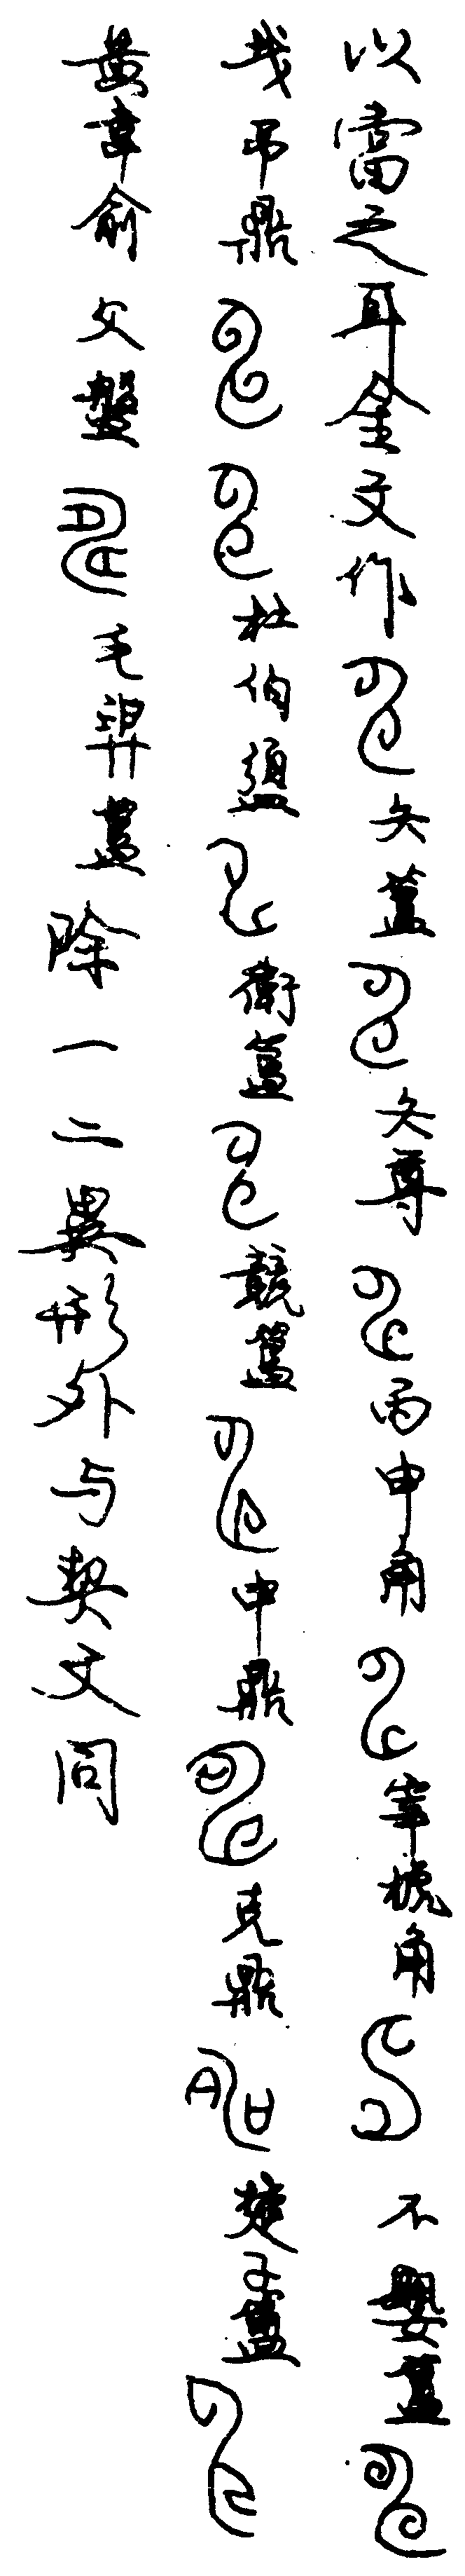 以當之耳金文作 夨簋 夨尊 丙申角 宰椃角 不𡢁簋
弔鼎 杜伯盨 衛簋 競簋 申鼎 克鼎 楚子
黃韋俞父盤 毛𢍰簋除一二異形外与契文同